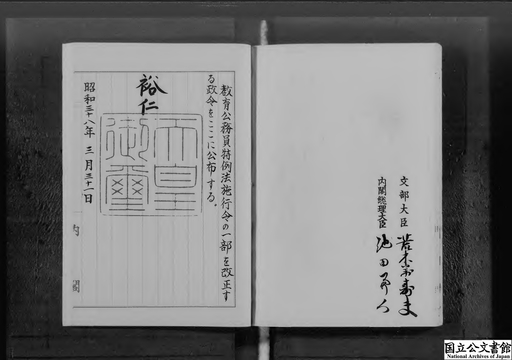 文部大臣 荒木萬壽夫
内閣総理大臣 池田勇人
教育公務員特例法施行令の一部を改正す
る政令をここに公布する。
裕仁
天皇
御璽
昭和三十八年三月三十一日
内閣
国立公文書館
National Archives of Japan